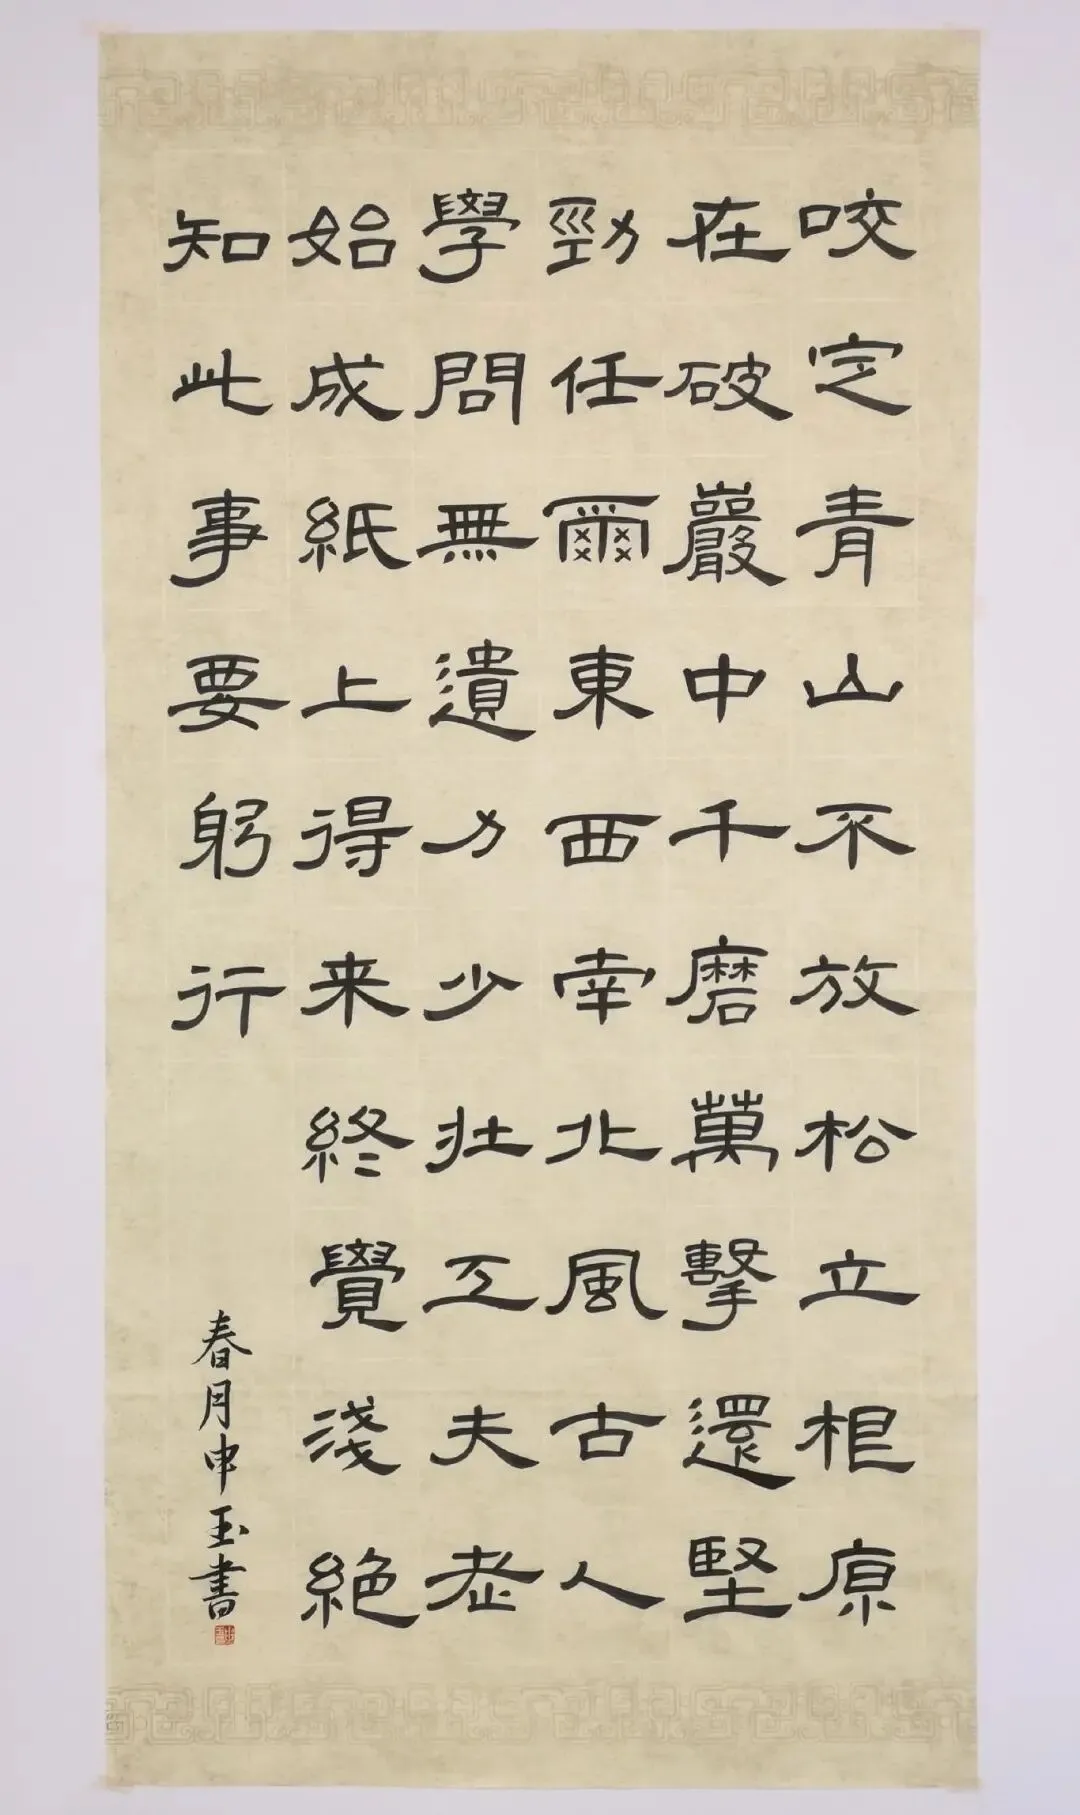 咬定青山不放松立根原
在破巖中千磨萬擊還堅
勁任爾東西南北風古人
學問無遺力少壯工夫老
始成紙上得来終覺淺絕
知此事要躬行
春月申玉書